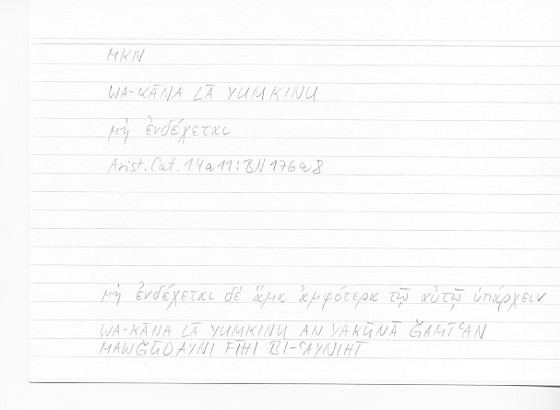 MKN
WA-KĀNA LĀ YUMKINU
μὴ ἐνδέχεται
Arist. Cat. 14a11: BN 176a8
μὴ ἐνδέχεται δὲ ἅμα ἀμφότερα τῷ αὐτῷ ὑπάρχειν
WA-KĀNA LĀ YUMKINU AN YAKŪNĀ ǦAMĪʿAN
MAWǦŪDAYNI FĪHI BI-ʿAYNIHĪ